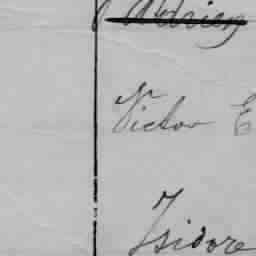 Adrien
Victor E
Isidore